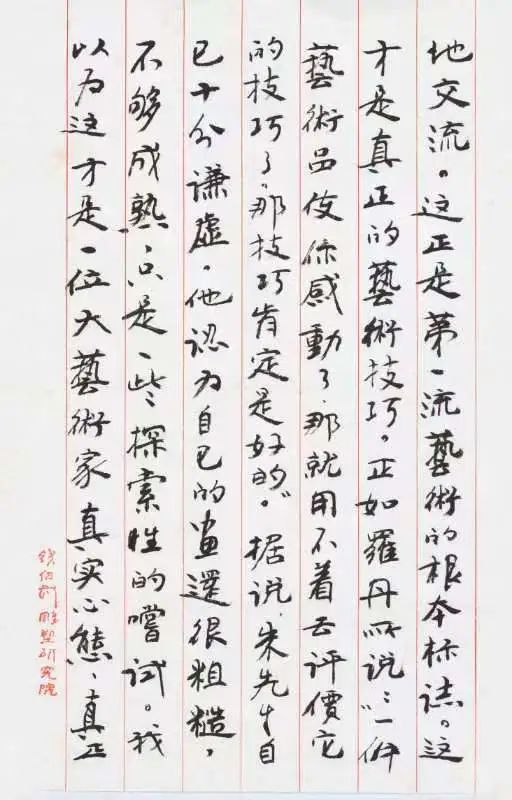 地交流。这正是第一流藝術的根本标誌。这
才是真正的藝術技巧。正如羅丹所说：“一件
藝術品使你感動了，那就用不着去评價它
的技巧了。那技巧肯定是好的。”据说，朱先生自
已十分谦虚，他认为自已的畫還很粗糙，
不够成熟，只是一些探索性的嚐试。我
以为这才是一位大藝術家真实心態、真正
雕塑研究院